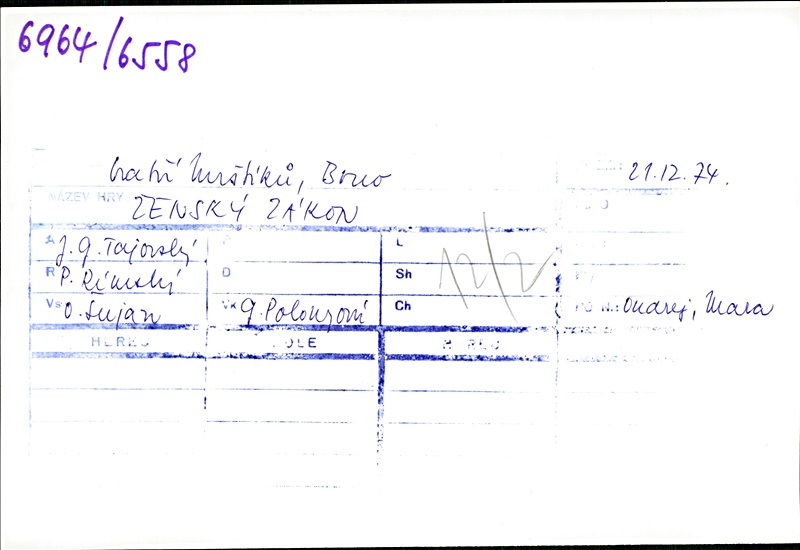 6964/6558
bratří Mrštíků, Brno 21.12.74.
NÁZEV HRY
ŽENSKÝ ZÁKON
A J. G. Tajovský L
R P. Rímský D Sh 12/2
Vs O. Šujan Vk G. Polonzoni Ch Ondrej, Mara
HEREC ROLE HEREC